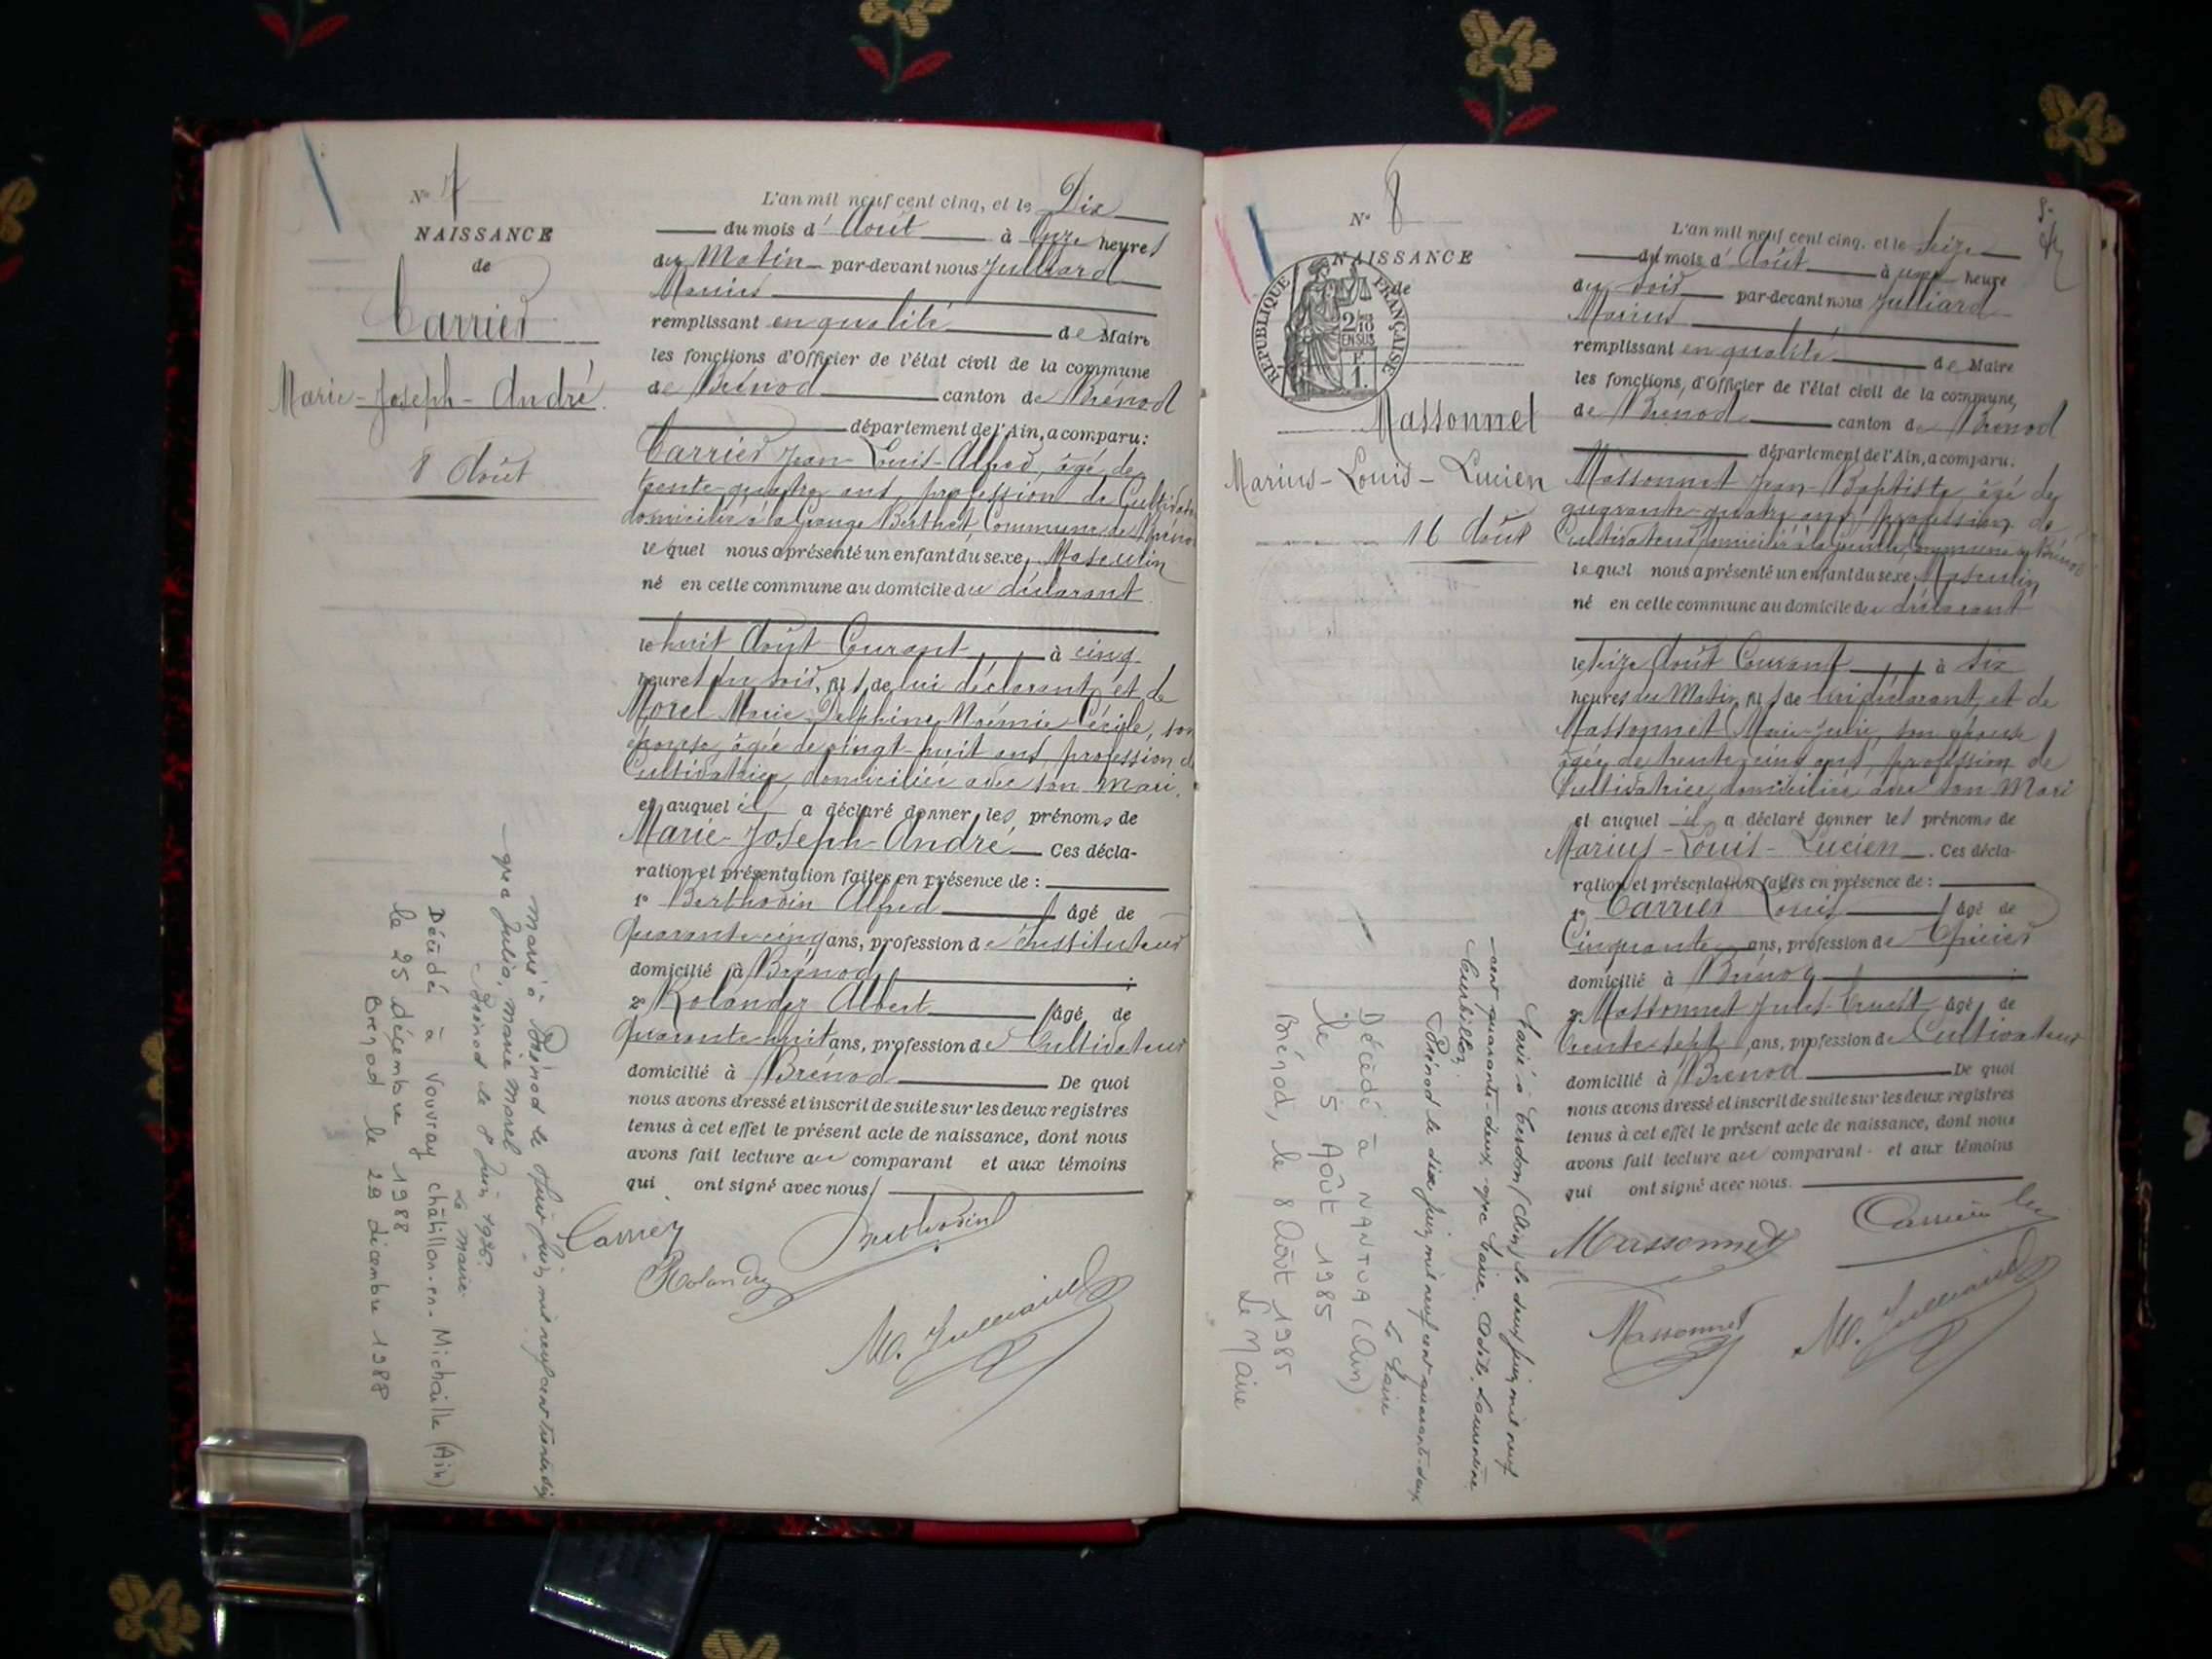 N° 7
NAISSANCE
de
Carrier
Marie-Joseph-André.
8 Août
L'an mil neuf cent cinq, et le Dix
du mois d'Août à Onze heures
du Matin par-devant nous Julliard
Marius
remplissant en qualité de Maire
les fonctions d'Officier de l'état civil de la commune
de Brénod canton de Brénod
département de l'Ain, a comparu :
Carrier Jean-Louis-Alfred, âgé de
trente-quatre ans, profession de Cultivateur
domicilié à la Grange Berthet, Commune de Brénod
lequel nous a présenté un enfant du sexe Masculin
né en cette commune au domicile du déclarant
le huit Août Courant à cinq
heures du soir, fils de lui déclarant, et de
Morel Marie Delphine Noémie Cécile, son
épouse, âgée de vingt-huit ans, profession de
Cultivatrice, domiciliée avec son mari.
et auquel il a déclaré donner les prénoms de
Marie-Joseph-André Ces décla-
ration et présentation faites en présence de :
1° Berthodin Alfred âgé de
Quarante-cinq ans, profession de Instituteur
domicilié à Brénod ;
2° Rolandez Albert âgé de
Quarante-huit ans, profession de Cultivateur
domicilié à Brénod De quoi
nous avons dressé et inscrit de suite sur les deux registres
tenus à cet effet le présent acte de naissance, dont nous
avons fait lecture au comparant et aux témoins
qui ont signé avec nous
Carrier
Rolandez
M. Julliard
Marié à Brénod le huit Juin mil neuf cent trente six
Julia, Marie Morel
Brénod le 8 Juin 1936.
Le Maire
Décédé à Vouvray Châtillon-en-Michaille (Ain)
le 25 décembre 1988
Brénod le 29 décembre 1988
N° 8
NAISSANCE
de
RÉPUBLIQUE FRANÇAISE
2/10
EN SUS
F.
1.
Massonnet
Marius-Louis-Lucien
16 Août
L'an mil neuf cent cinq, et le Seize
du mois d'Août à une heure
du soir par-devant nous Julliard
Marius
remplissant en qualité de Maire
les fonctions, d'Officier de l'état civil de la commune,
de Brénod canton de Brénod
département de l'Ain, a comparu :
Massonnet Jean-Baptiste, âgé de
quarante-quatre ans, profession de
Cultivateur, domicilié à la commune de Brénod
lequel nous a présenté un enfant du sexe Masculin
né en cette commune au domicile du déclarant
le seize Août Courant à six
heures du Matin, fils de lui déclarant, et de
Massonnet Marie-Julie, son épouse
âgée de trente-cinq ans, profession de
Cultivatrice, domiciliée avec son Mari
et auquel il a déclaré donner les prénoms de
Marius-Louis-Lucien. Ces décla-
ration et présentation faites en présence de :
1° Carrier Louis âgé de
Cinquante ans, profession de Epicier
domicilié à Brénod ;
2° Massonnet Jules-Ernest âgé de
trente-sept ans, profession de Cultivateur
domicilié à Brénod De quoi
nous avons dressé et inscrit de suite sur les deux registres
tenus à cet effet le présent acte de naissance, dont nous
avons fait lecture au comparant et aux témoins
qui ont signé avec nous.
Massonnet
Massonnet
M. Julliard
Marié à Cerdon (Ain) le deux Juin mil neuf
cent quarante-deux, avec Odile, Laurentine
Curbillon.
Brénod le dix Juin mil neuf cent quarante-deux
Le Maire
Décédé à NANTUA (Ain)
le 5 Août 1985
Brénod, le 8 Août 1985
Le Maire